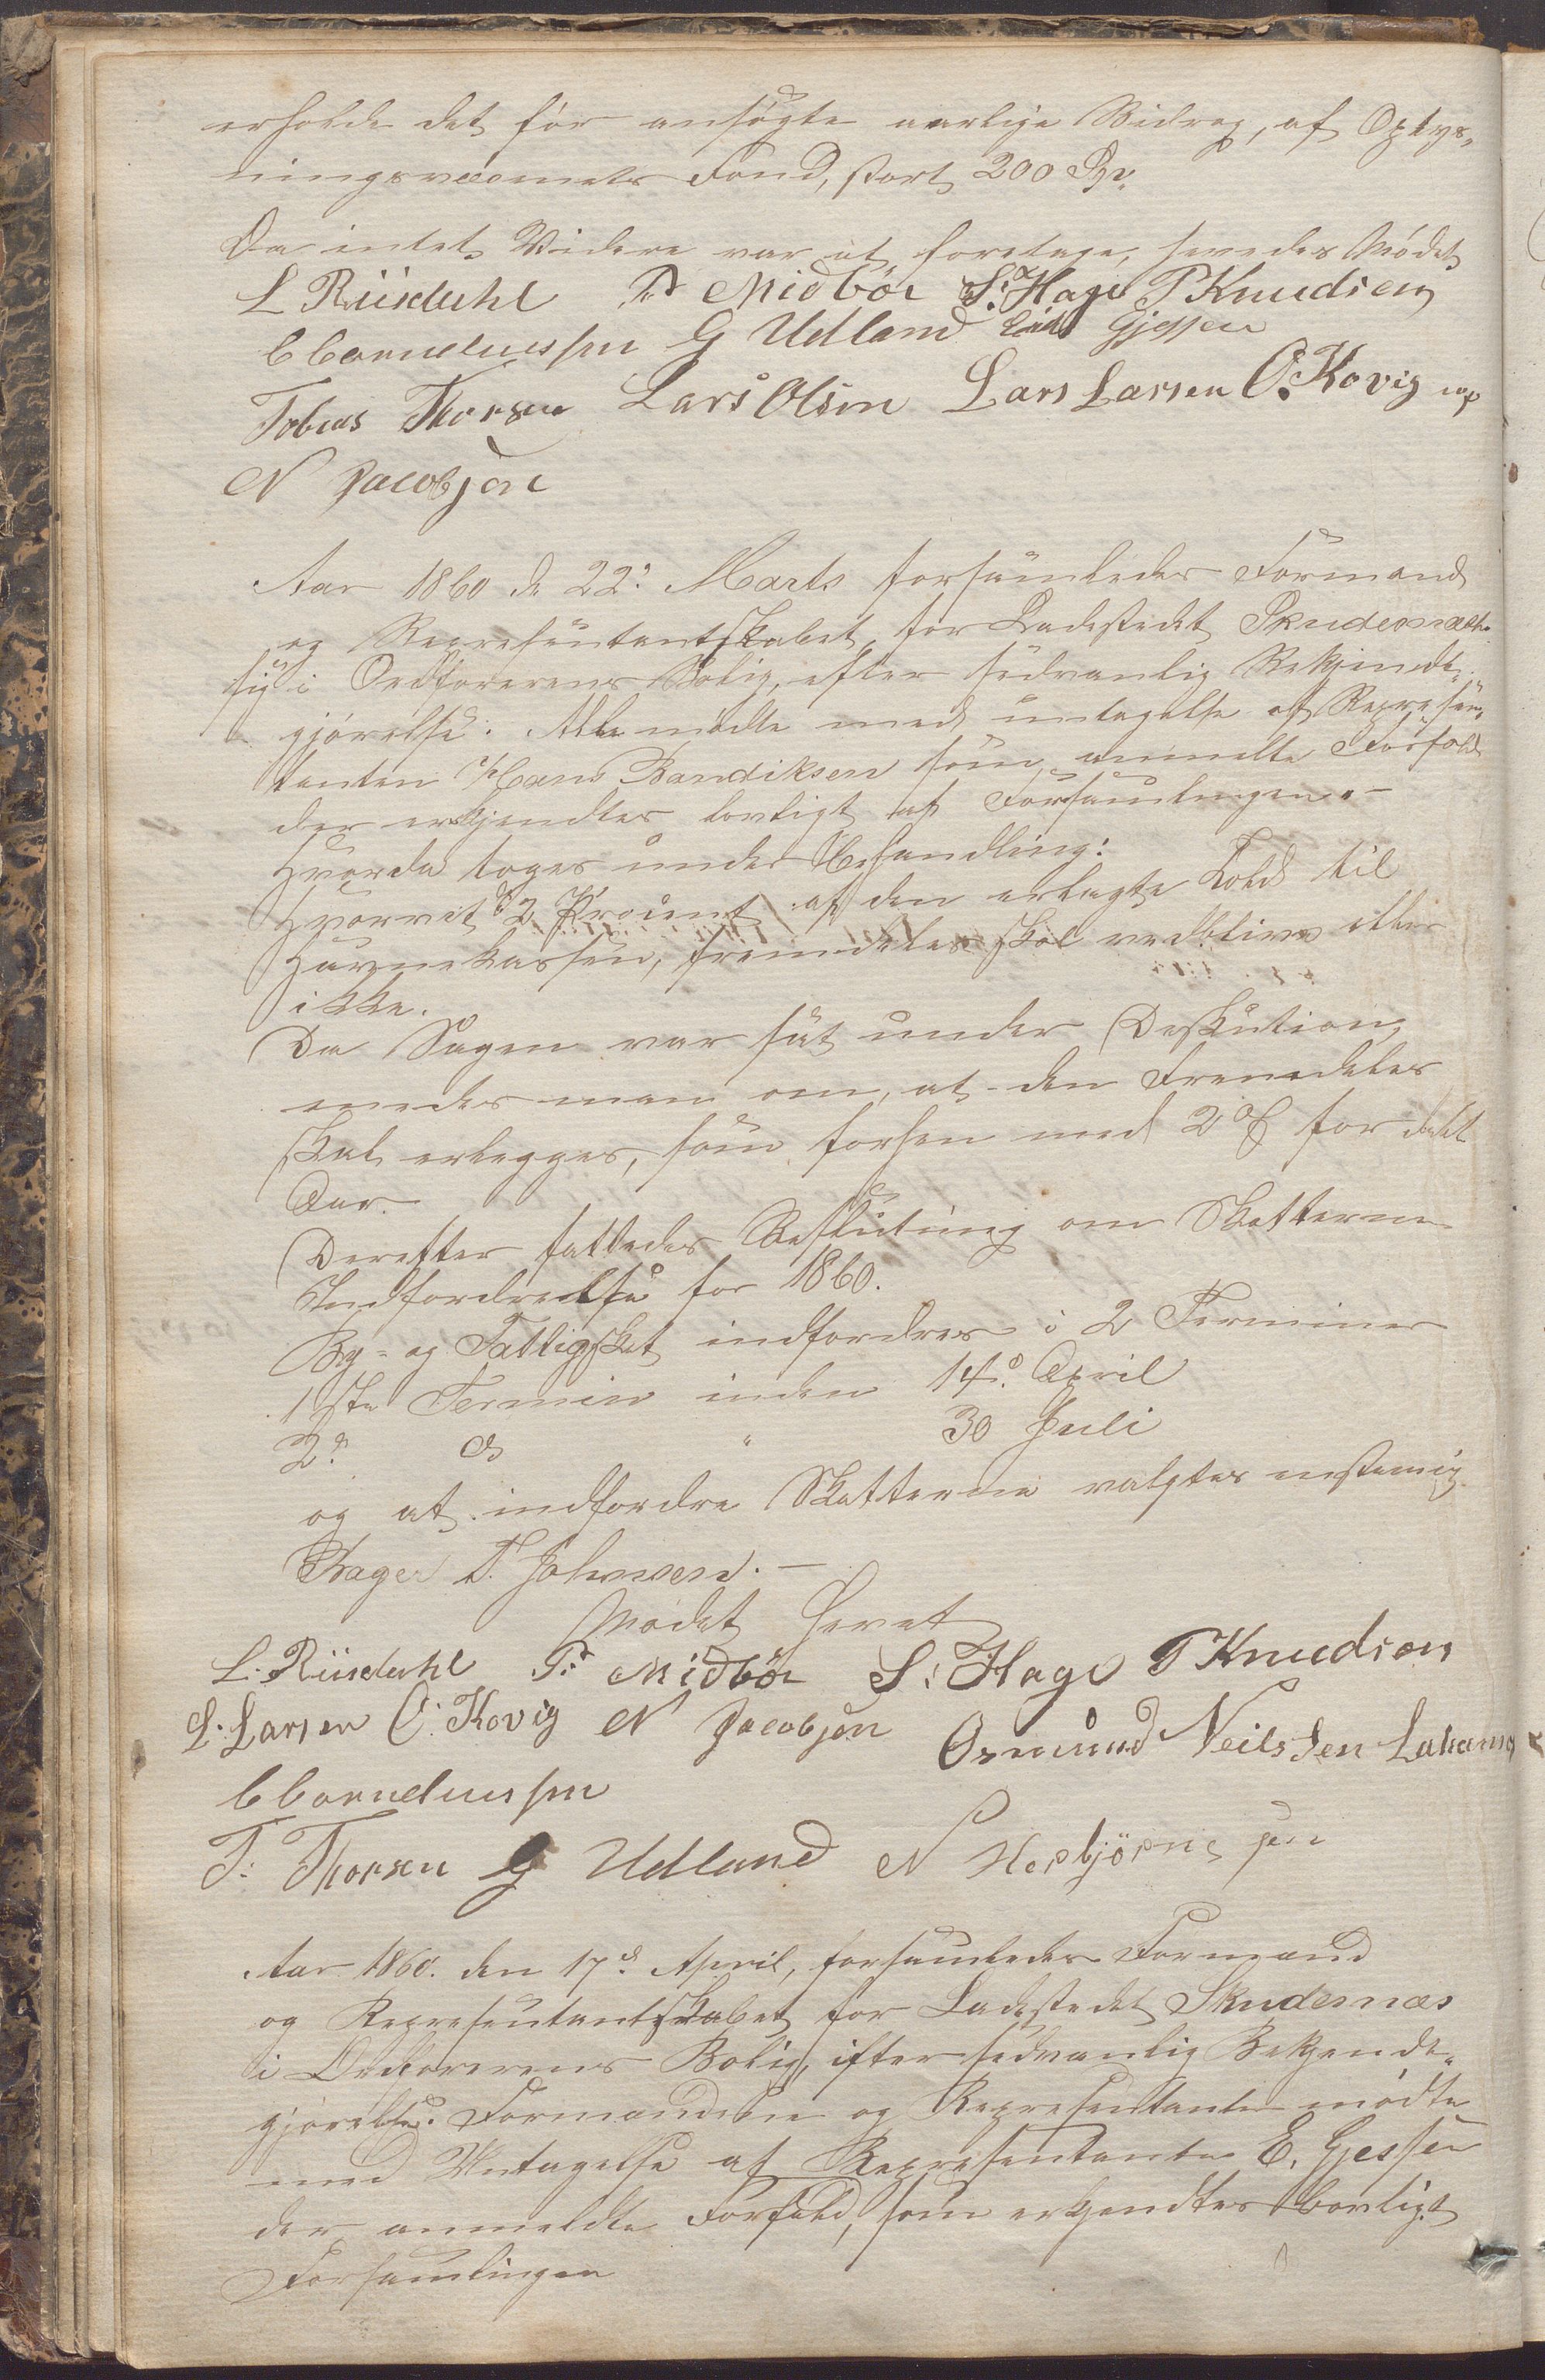 erholde det för ansögte aarlige Bidrag, af Oplys-
ningsvæsenets Fond, stort 200 Spd.
Da intet Videre var at foretage, hevedes Mödet
L Riisdahl P Midböe S. Hage P Knudsen
C Corneliussen G Udland Gjessen
Tobias Thorsen Lars Olsen Lars Larsen O. Kovig
N Jacobsen
Aar 1860 d. 22d Marts forsamledes Formand
og Repræsentantskabet for Ladestedet Skudesnæs
sig i Ordförerens Bolig, efter sedvanlig Bekjendt-
gjörelse. Alle mödte med undtagelse af Repræsen-
tanten Hans Bendiksen som anmelte Forfald
der erkjendtes lovligt af Forsamlingen. –
Hvorda toges under Behandling:
Hvorvit 2 Procent af den erlagte Told til
Havnekassen, fremdeles skal vedblive eller
ikke.
Da Sagen var sat under Deskution
enedes man om, at den Fremdeles
skal erlegges, som forhen med 2 % for dette
Aar.
Derefter fattedes Beslutning om Skatternes
Indfordrelse for 1860.
By- og Fattigskat indfordres i 2 Terminer
1ste Termin inden 14d April
2d do " 30 Juli
og at indfordre Skatterne valgtes enstemig
Bager T. Johnsen. –
Mödet hevet
L. Riisdahl P. Midböe S. Hage P Knudsen
L. Larsen O. Kovig N Jacobsen Osmund Neilssen
C Corneliussen
T. Thorsen G Udland N Herbjörnsen
Aar 1860. den 17d April, forsamledes Formand
og Repræsentantskabet for Ladestedet Skudesnæs
i Ordförerens Bolig, efter sedvanlig Bekjendt-
gjörelse. Formændene og Repræsentante mödte
med Untagelse af Repræsentanten E. Gjessen
der anmeldte Forfald, som erkjendtes lovligt
Forsamlingen